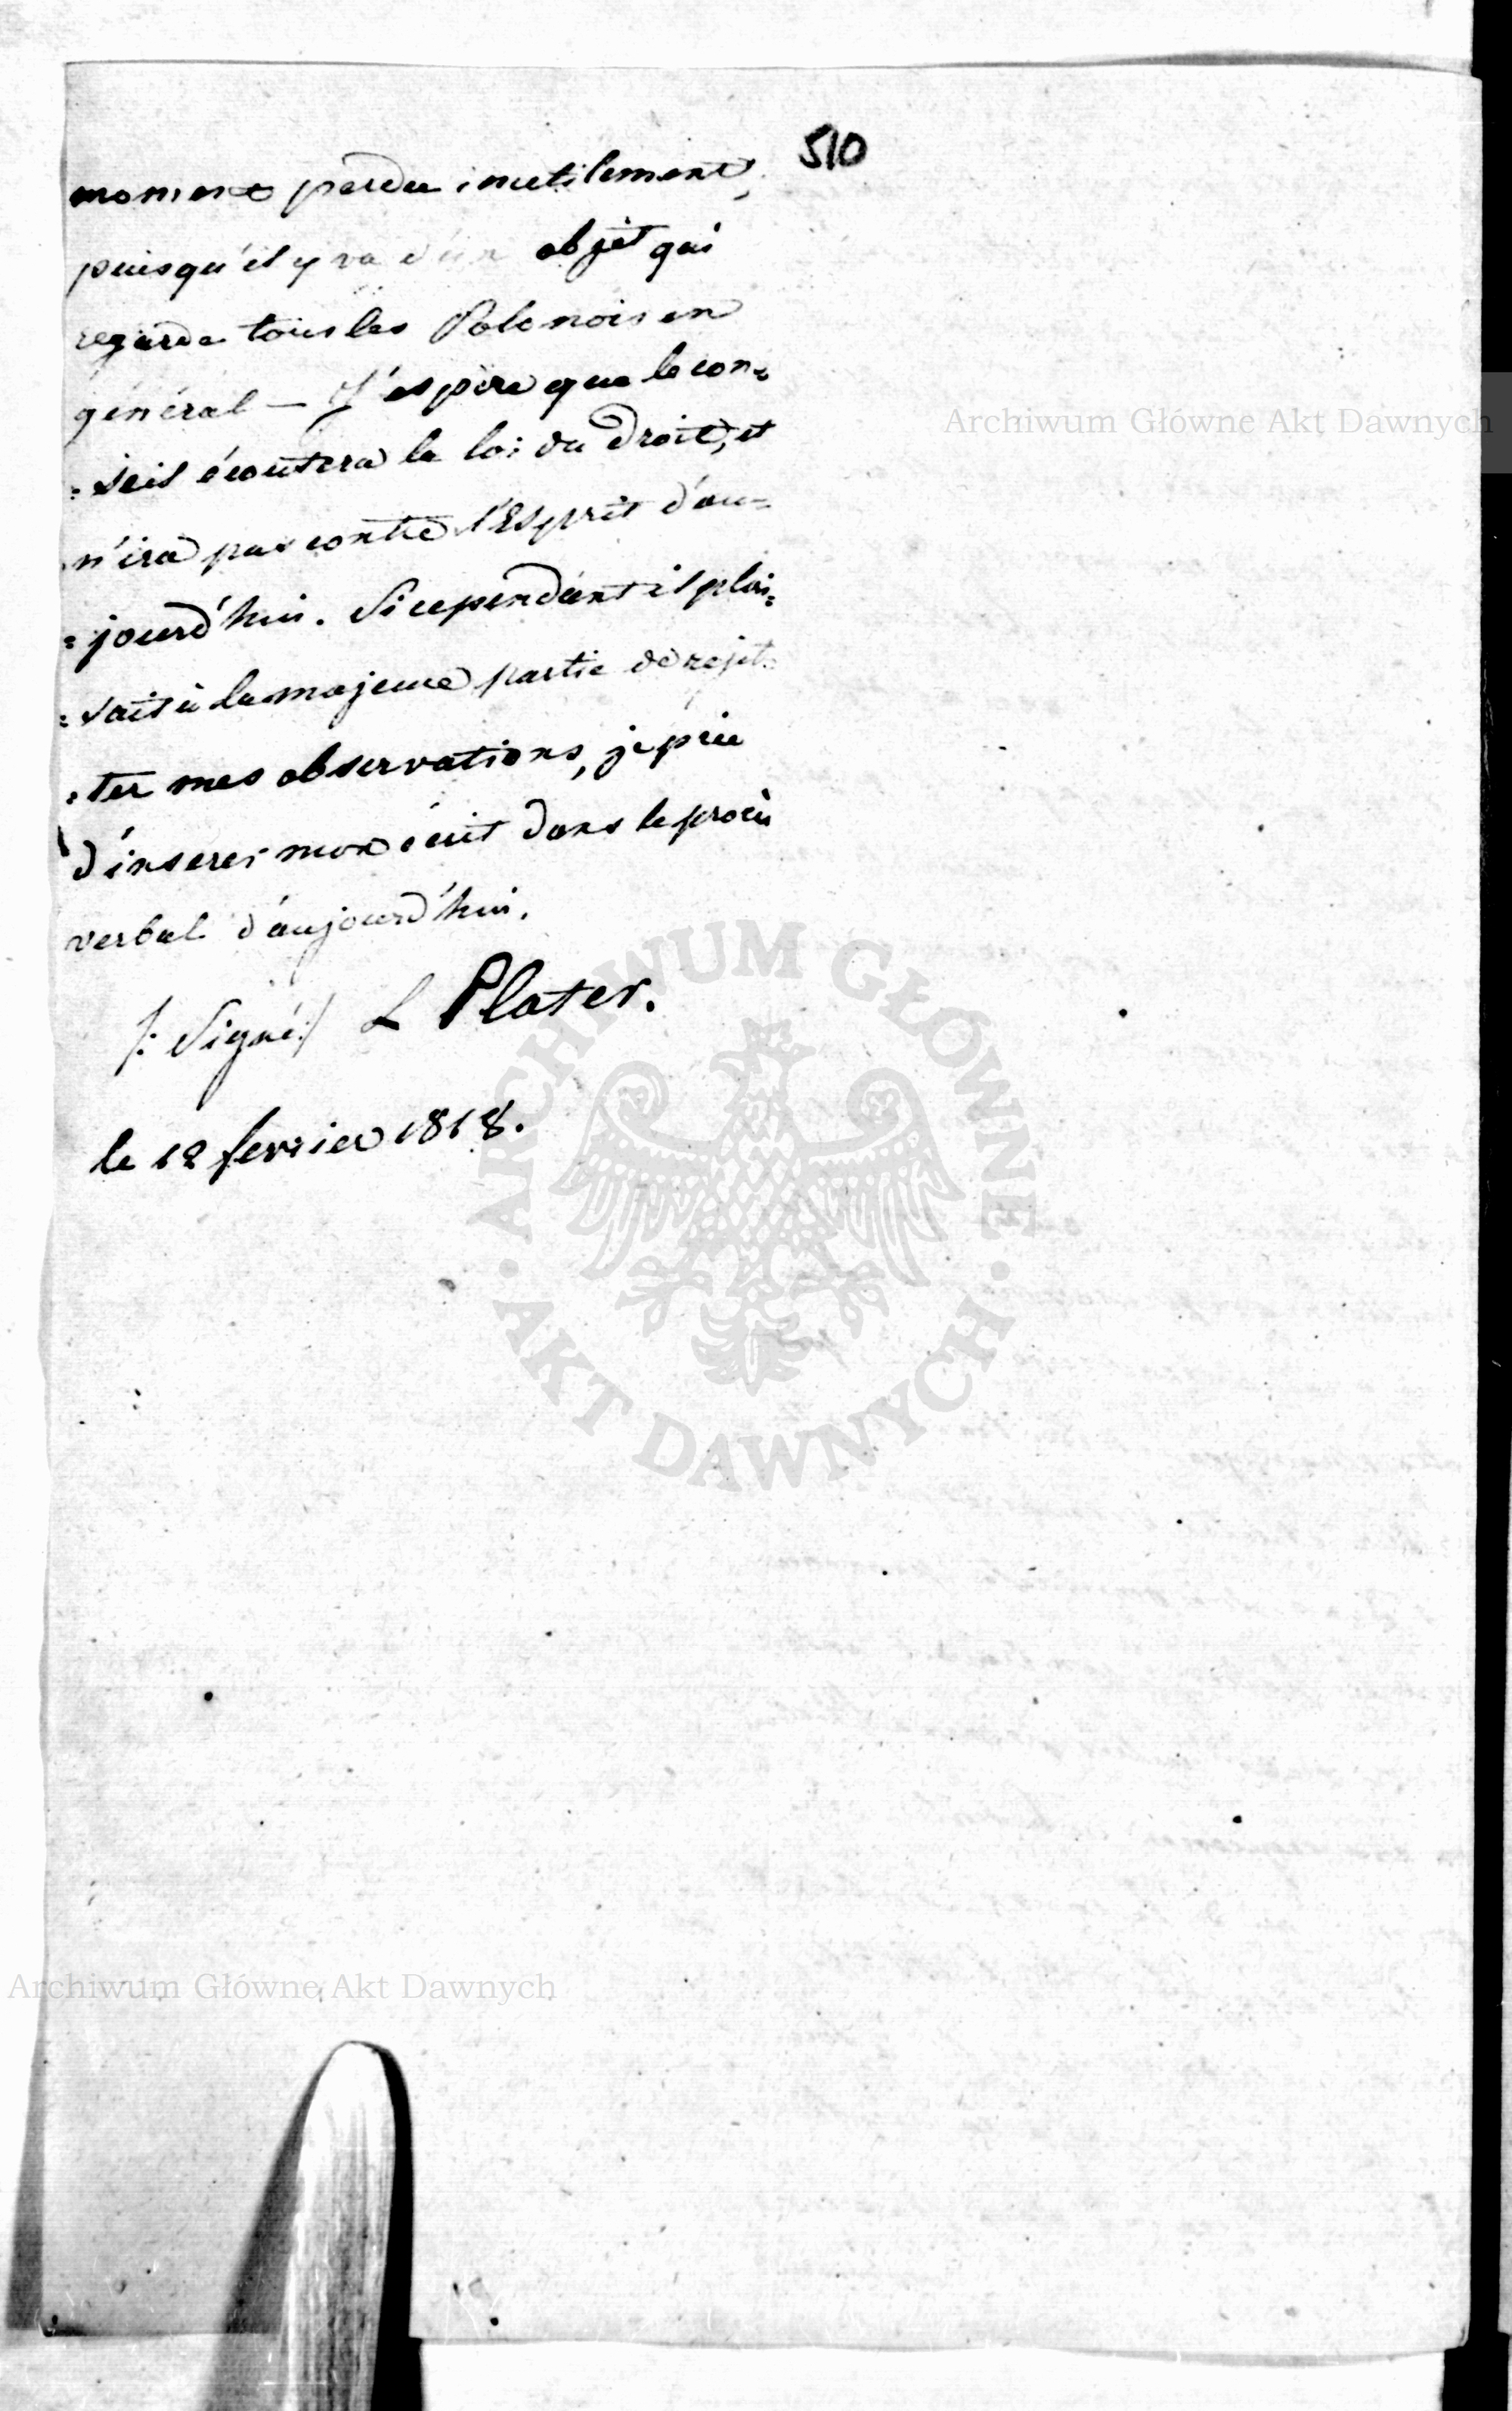 510
moment perdu inutilement,
puisqu'il y va d'un objet qui
regarde tous les Polonois en
général — J'espère que le con=
=seil écoutera la loi du droit, et
n'ira pas contre l'Esprit d'au=
=jourd'hui. Si cependant il plai=
=sait à la majeure partie de rejet=
=ter mes observations, je prie
d'inserer mon écrit dans le procès
verbal d'aujourd'hui.
/: Signé :/ L Plater.
le 12 fevrier 1818.
Archiwum Główne Akt Dawnych
ARCHIWUM GŁÓWNE
AKT DAWNYCH
Archiwum Główne Akt Dawnych